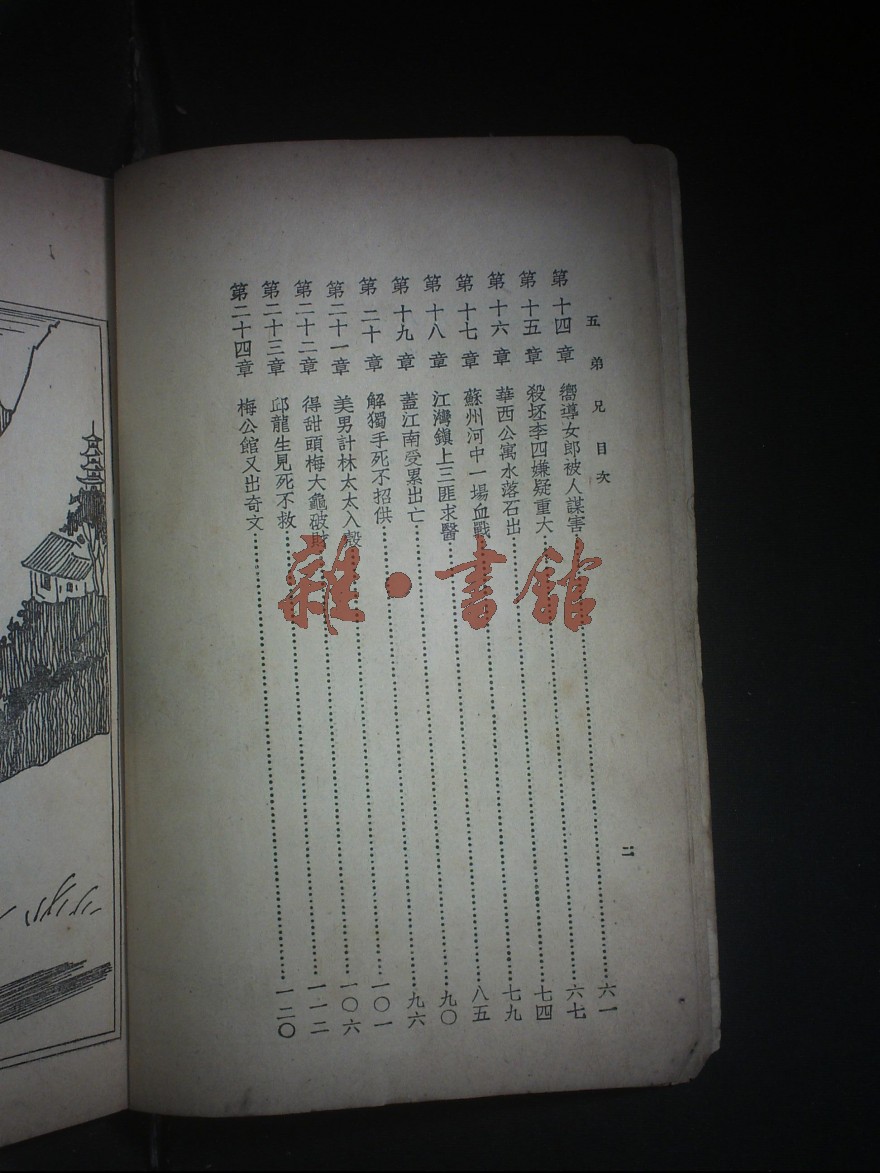 五弟兄目次
第十四章 嚮導女郎被人謀害 六一
第十五章 殺坯李四嫌疑重大 六七
第十六章 華西公寓水落石出 七四
第十七章 蘇州河中一場血戰 七九
第十八章 江灣鎮上三匪求醫 八五
第十九章 蓋江南受累出亡 九〇
第二十章 解獨手死不招供 九六
第二十一章 美男計林太太入彀 一〇一
第二十二章 得甜頭梅大龜破財 一〇六
第二十三章 邱龍生見死不救 一一二
第二十四章 梅公館又出奇文 一二〇
二
雜·書館